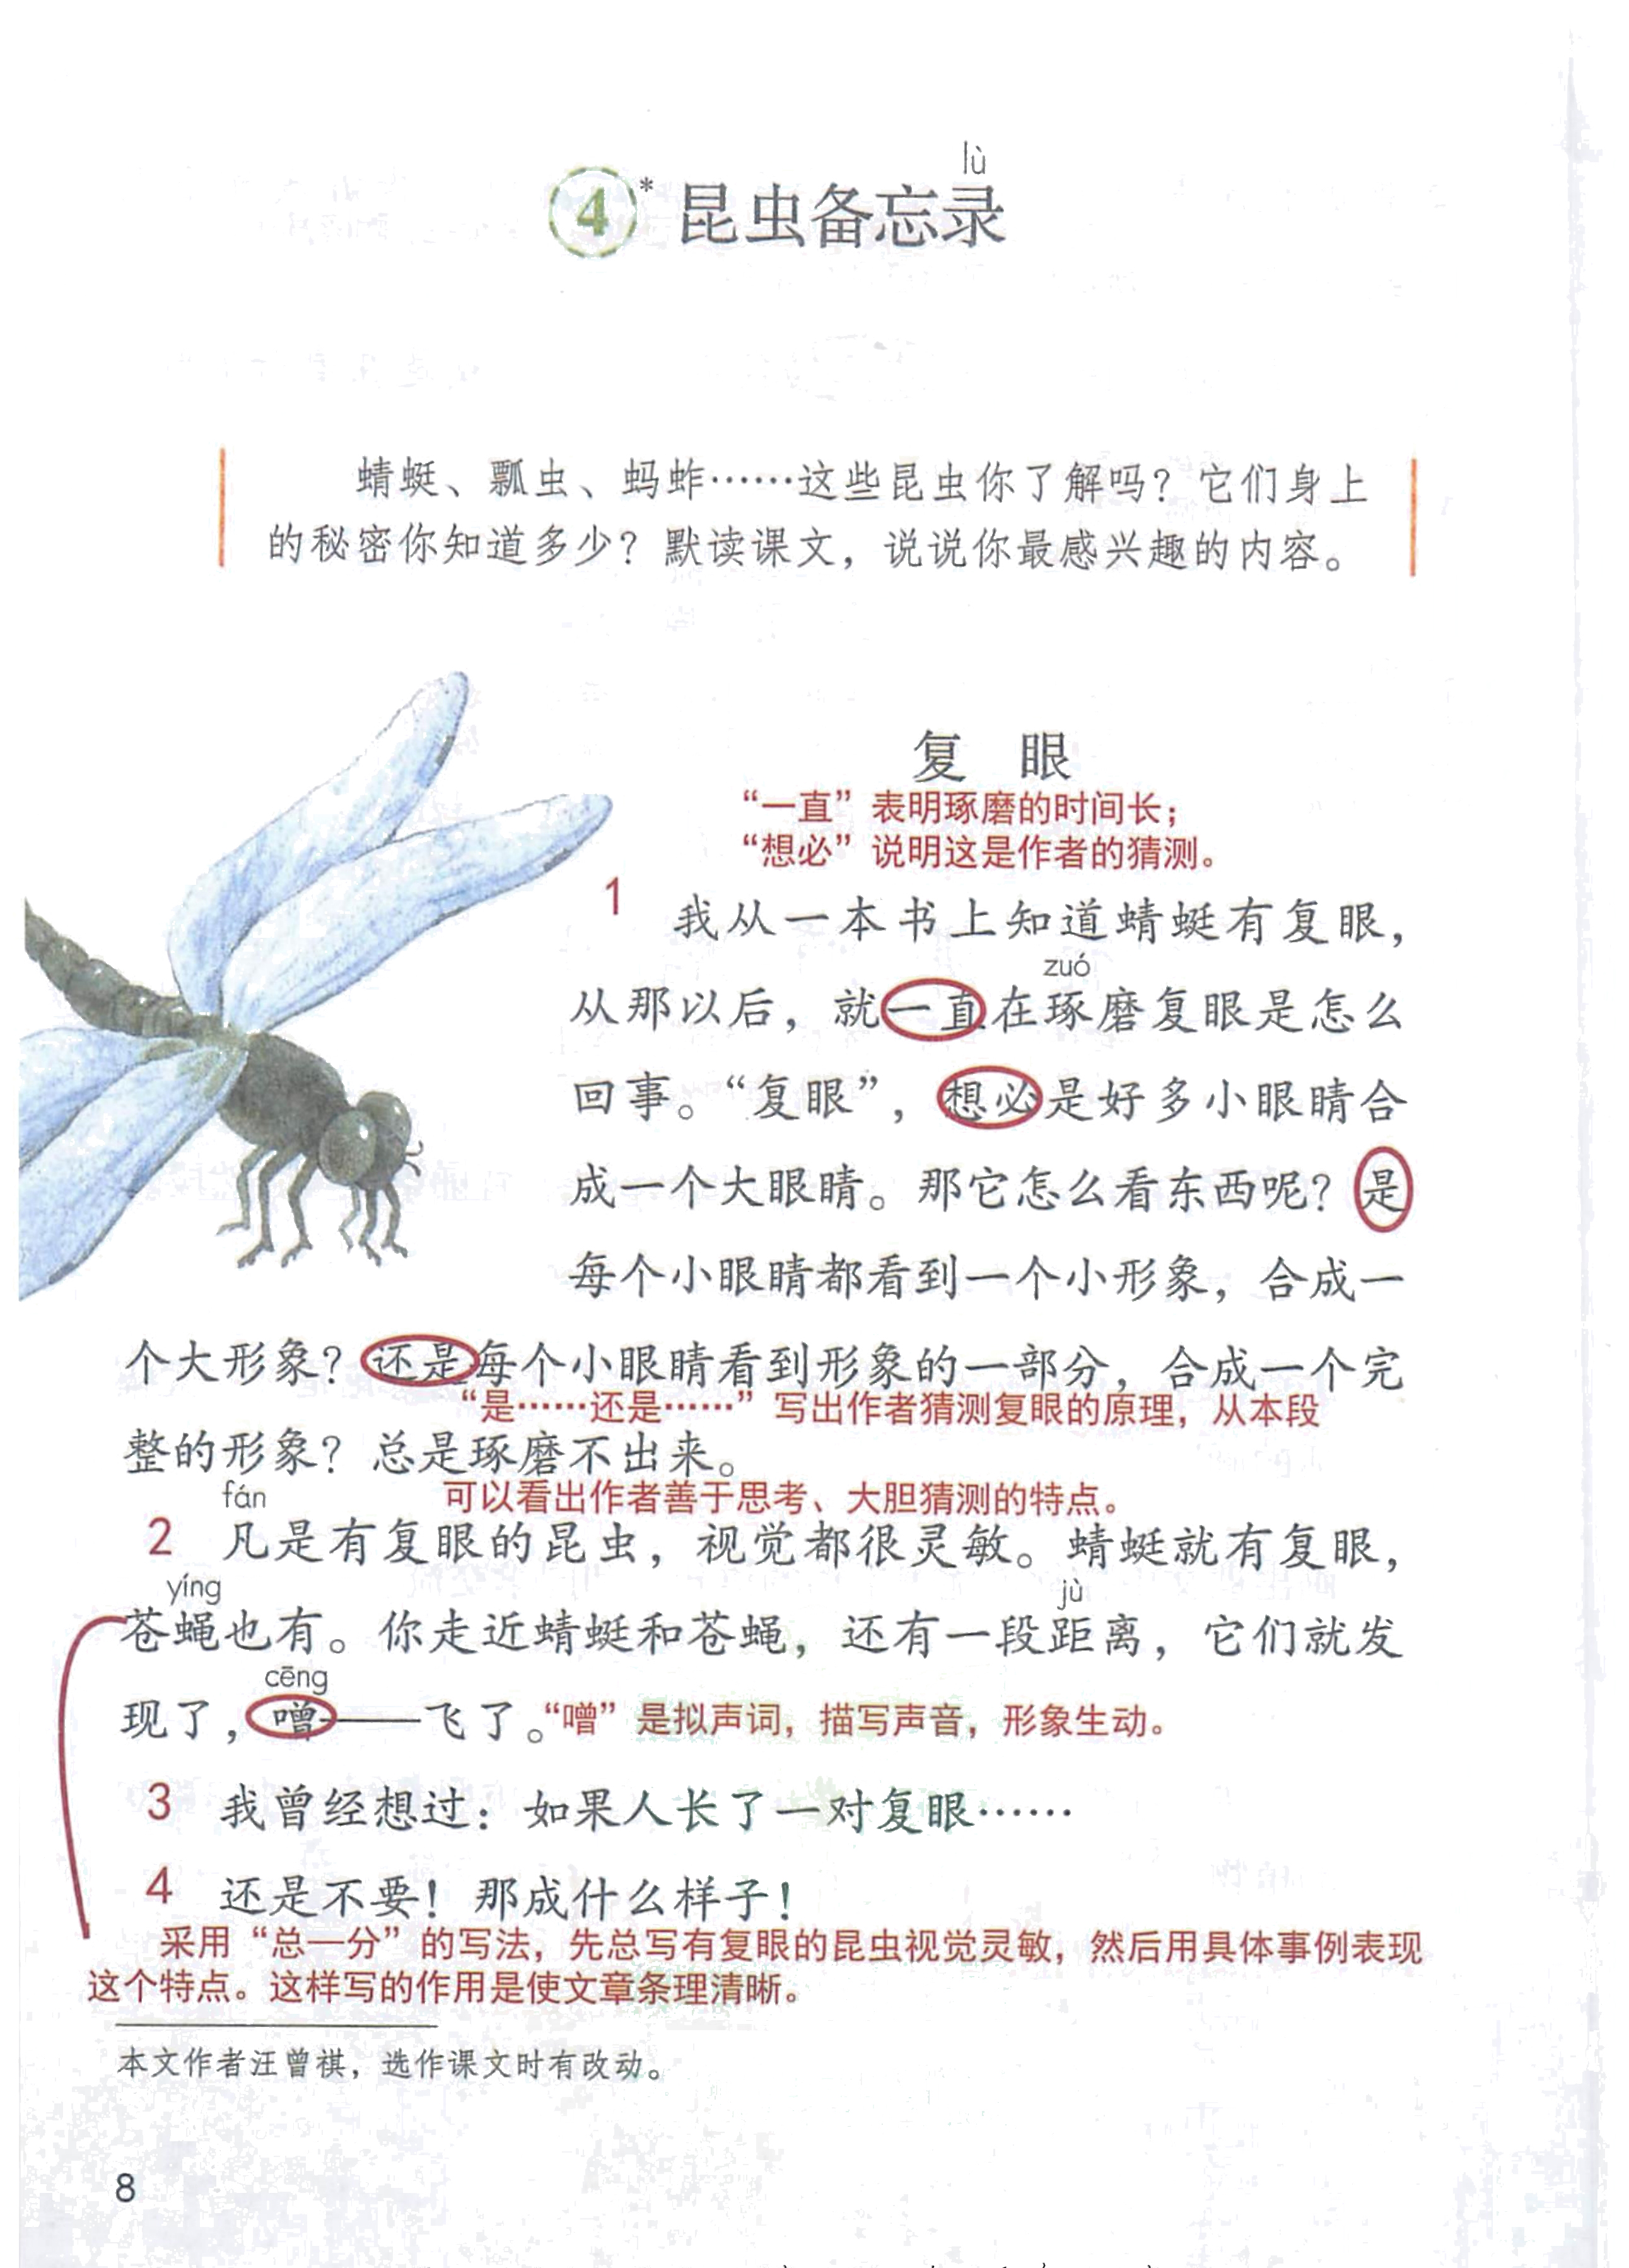 lù
4* 昆虫备忘录
蜻蜓、瓢虫、蚂蚱……这些昆虫你了解吗？它们身上
的秘密你知道多少？默读课文，说说你最感兴趣的内容。
复 眼
“一直”表明琢磨的时间长；
“想必”说明这是作者的猜测。
1 我从一本书上知道蜻蜓有复眼，
zuó
从那以后，就一直在琢磨复眼是怎么
回事。“复眼”，想必是好多小眼睛合
成一个大眼睛。那它怎么看东西呢？是
每个小眼睛都看到一个小形象，合成一
个大形象？还是每个小眼睛看到形象的一部分，合成一个完
“是……还是……”写出作者猜测复眼的原理，从本段
整的形象？总是琢磨不出来。
可以看出作者善于思考、大胆猜测的特点。
fán
2 凡是有复眼的昆虫，视觉都很灵敏。蜻蜓就有复眼，
yíng jù
苍蝇也有。你走近蜻蜓和苍蝇，还有一段距离，它们就发
cēng
现了，噌——飞了。“噌”是拟声词，描写声音，形象生动。
3 我曾经想过：如果人长了一对复眼……
4 还是不要！那成什么样子！
采用“总—分”的写法，先总写有复眼的昆虫视觉灵敏，然后用具体事例表现
这个特点。这样写的作用是使文章条理清晰。
本文作者汪曾祺，选作课文时有改动。
8